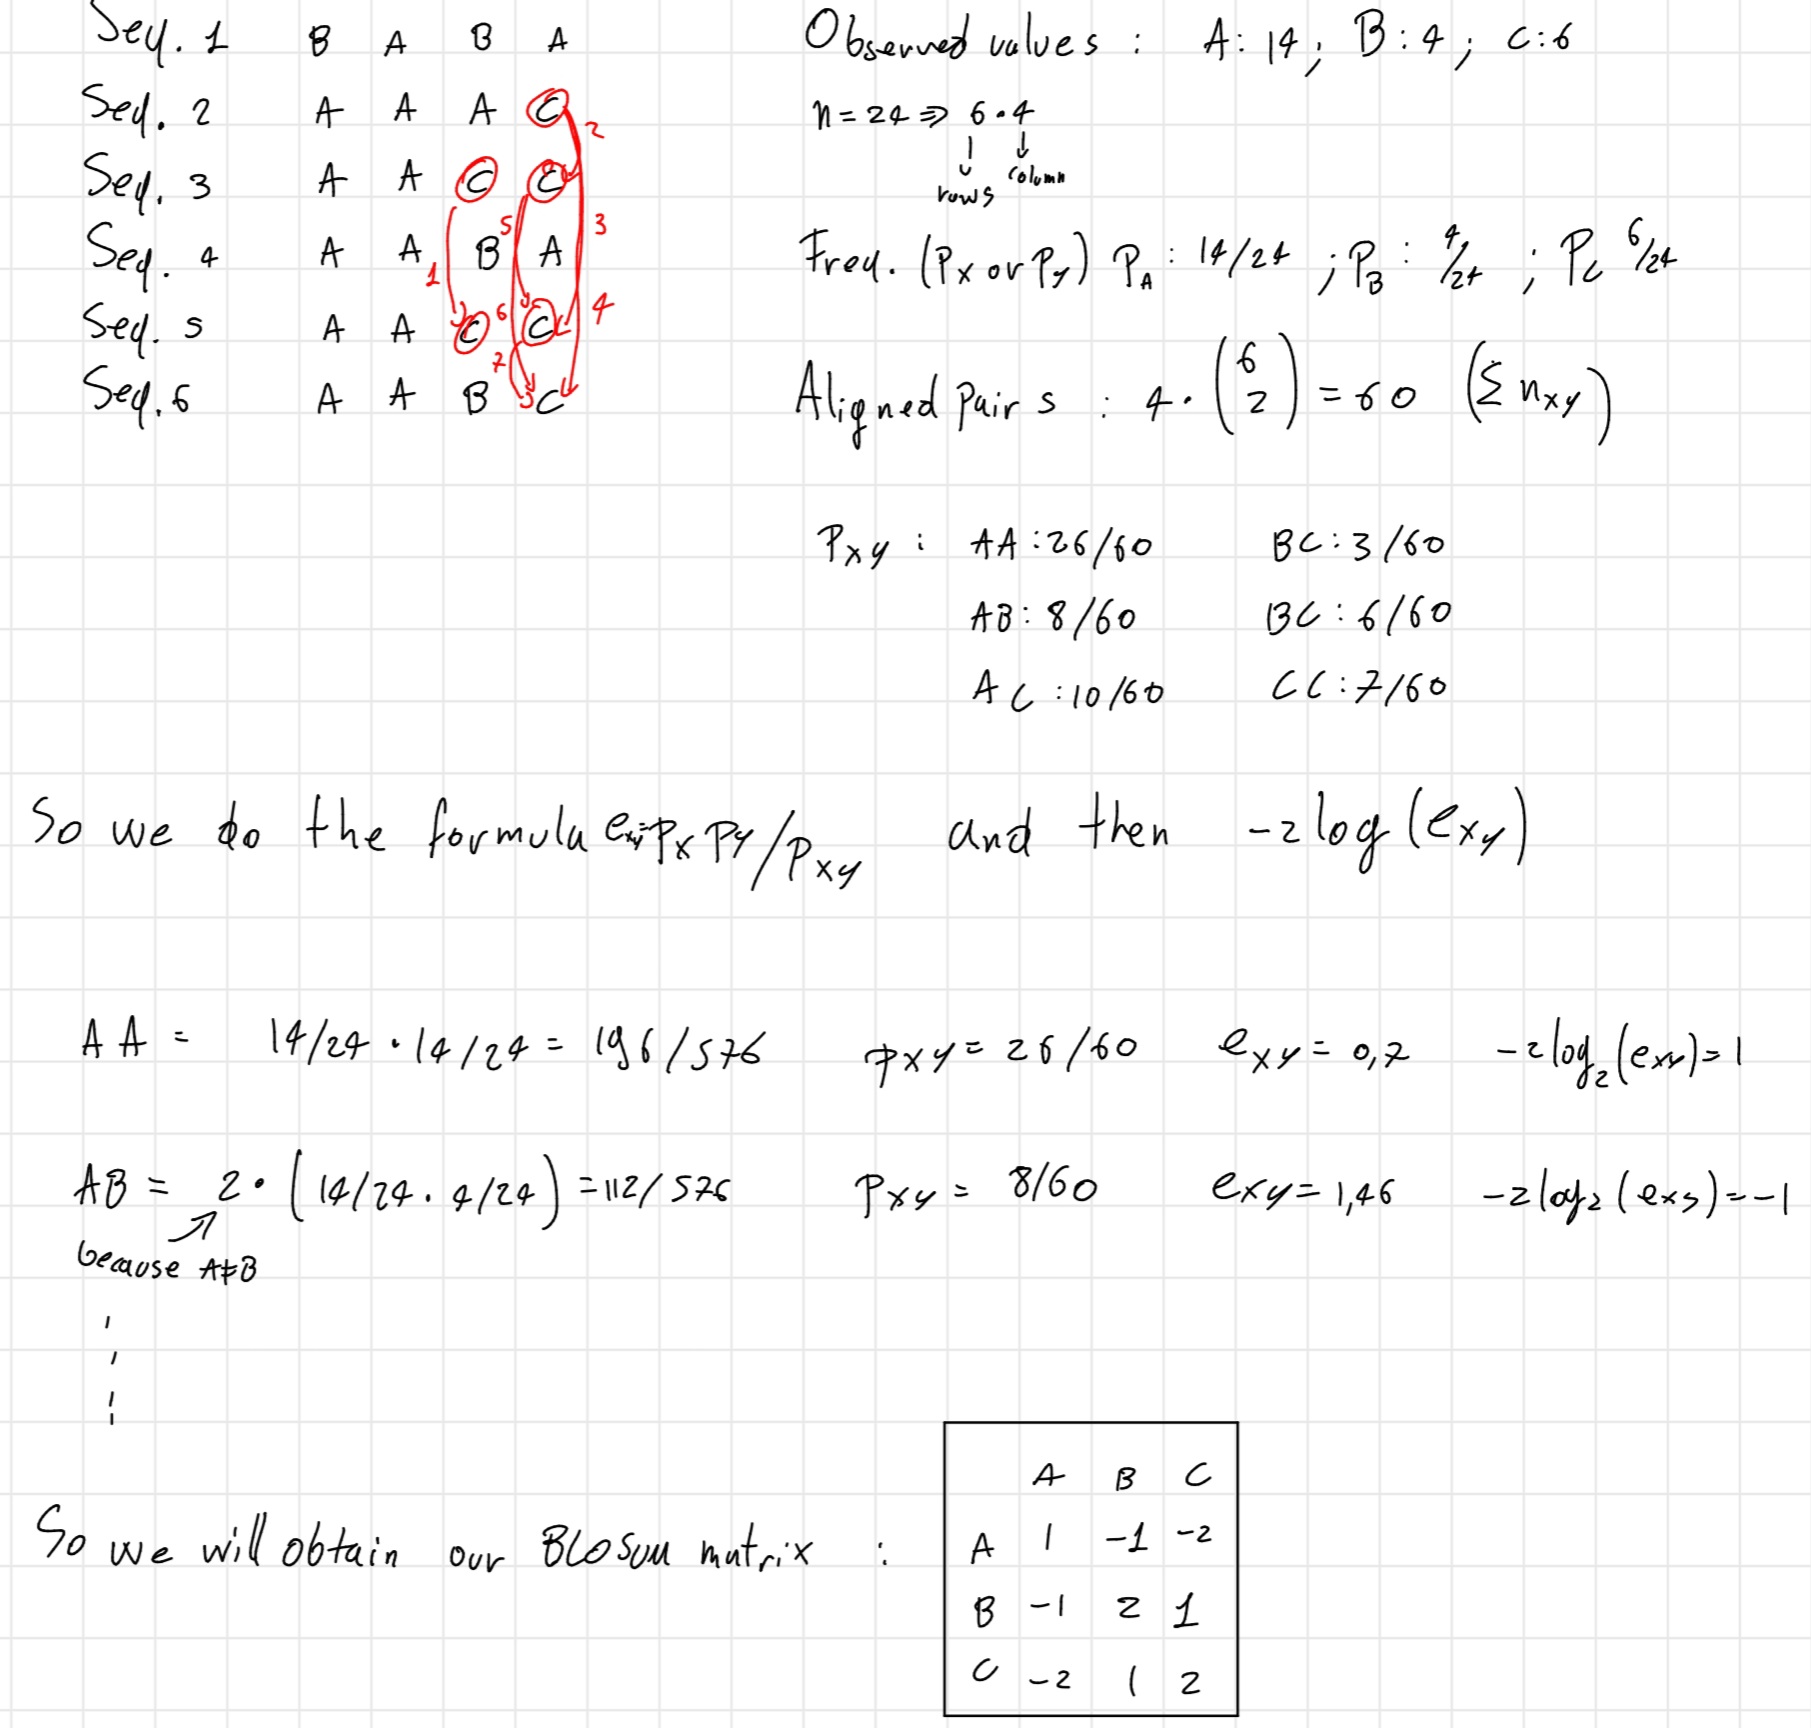 Seq. 1 B A B A
Seq. 2 A A A C
Seq. 3 A A C C
Seq. 4 A A B A
Seq. 5 A A C C
Seq. 6 A A B C
1
2
3
4
5
6
7
Observed values : A: 14; B: 4; C: 6
n = 24 => 6 · 4
rows column
Freq. (Px or Py) PA : 14/24 ; PB : 4/24 ; PC 6/24
Aligned pairs : 4 · (6 2) = 60 (Σ nxy)
Pxy : AA : 26/60 BC : 3/60
AB : 8/60 BC : 6/60
AC : 10/60 CC : 7/60
So we do the formula exy = Px Py / Pxy and then -2 log (exy)
AA = 14/24 · 14/24 = 196/576 pxy = 26/60 exy = 0,7 -2 log2 (exy) = 1
AB = 2 · (14/24 · 4/24) = 112/576 Pxy = 8/60 exy = 1,46 -2 log2 (exy) = -1
because A≠B
So we will obtain our BLOSUM matrix :
A B C
A 1 -1 -2
B -1 2 1
C -2 1 2